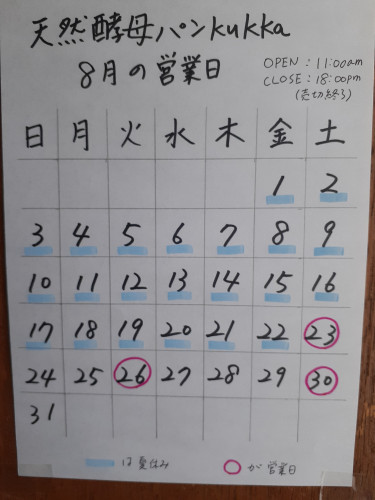 天然酵母パンkukka
8月の営業日
OPEN : 11:00am
CLOSE : 18:00pm
(売切終了)
日 月 火 水 木 金 土
1 2
3 4 5 6 7 8 9
10 11 12 13 14 15 16
17 18 19 20 21 22 23
24 25 26 27 28 29 30
31
は夏休み
が営業日